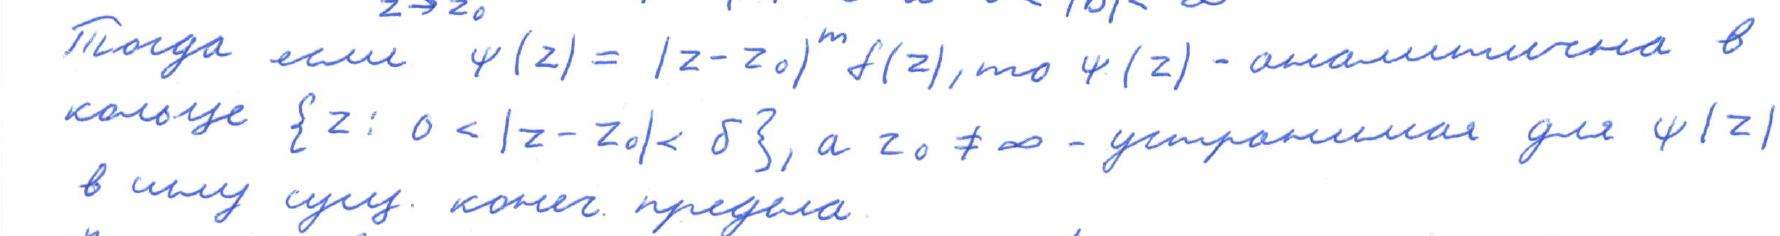 z→z₀
Тогда если ψ(z) = (z-z₀)ᵐ f(z), то ψ(z) - аналитична в
кольце {z: 0 < |z-z₀| < δ}, а z₀ ≠ ∞ - устранимая для ψ(z)
в силу сущ. конеч. предела